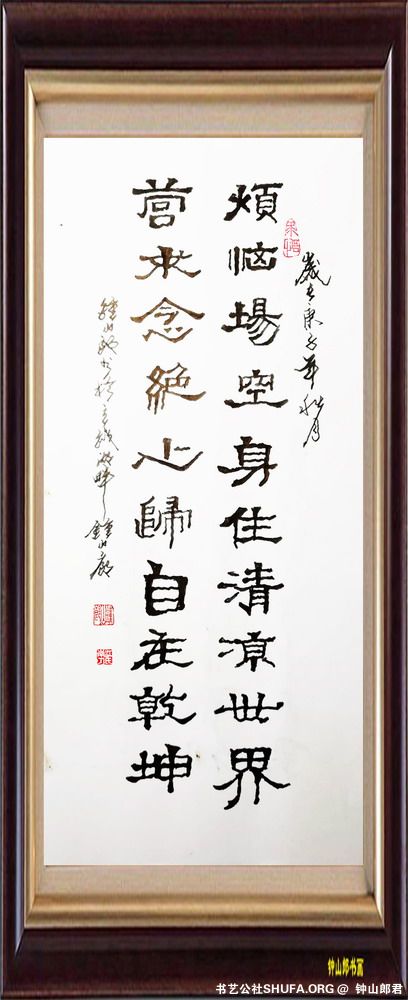 歲在庚子年秋月
煩惱場空身住清凉世界
营求念絕心歸自在乾坤
鍾山郎
钟山郎书画
书艺公社SHUFA.ORG @ 钟山郎君